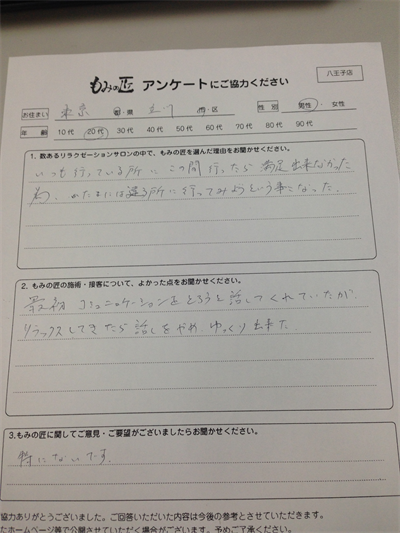 もみの匠 アンケートにご協力ください
八王子店
お住まい 東京 都・県 立川 市・区 性別 男性・女性
年齢 10代 20代 30代 40代 50代 60代 70代 80代 90代
1. 数あるリラクゼーションサロンの中で、もみの匠を選んだ理由をお聞かせください。
いつも行っている所にこの間行ったら満足出来なかった
為、かたまには違う所に行ってみようという事になった。
2. もみの匠の施術・接客について、よかった点をお聞かせください。
最初コミュニケーションをとろうと話してくれていたが
リラックスしてきたら話しをやめゆっくり出来た
3.もみの匠に関してご意見・ご要望がございましたらお聞かせください。
特にないです。
協力ありがとうございました。ご回答いただいた内容は今後の参考とさせていただきます。
たホームページ等で公開させていただく場合がございます。予めご了承ください。